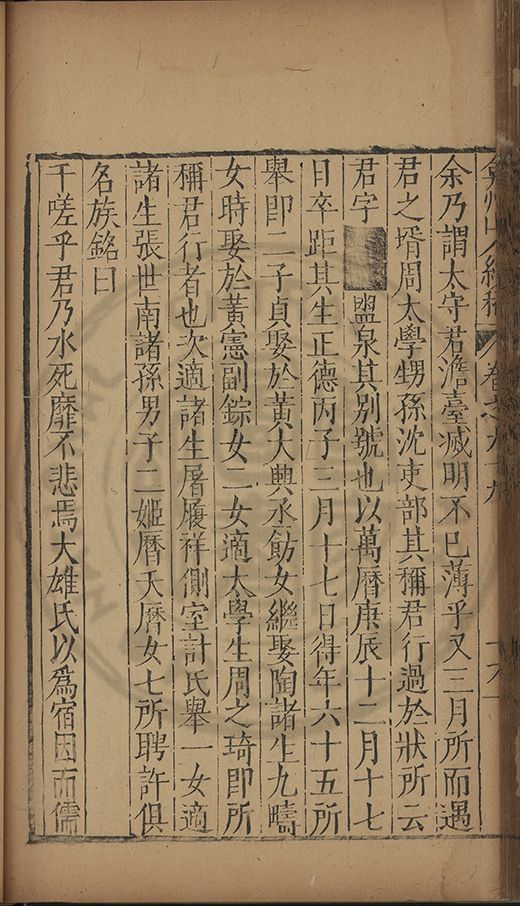 弇州山人續稿 卷之九十九
余乃謂太守君澹臺滅明不已薄乎又三月所而遇
君之壻周太學甥孫沈吏部其稱君行過於狀所云
君字 盟泉其別號也以萬曆庚辰十二月十七
日卒距其生正德丙子三月十七日得年六十五所
舉即二子貞娶於黃大興丞飭女繼娶陶諸生九疇
女時娶於黃憲副錝女二女適太學生周之琦即所
稱君行者也次適諸生屠履祥側室計氏舉一女適
諸生張世南諸孫男子二姬曆天曆女七所聘許俱
名族銘曰
于嗟乎君乃水死靡不悲焉大雄氏以爲宿因而儒